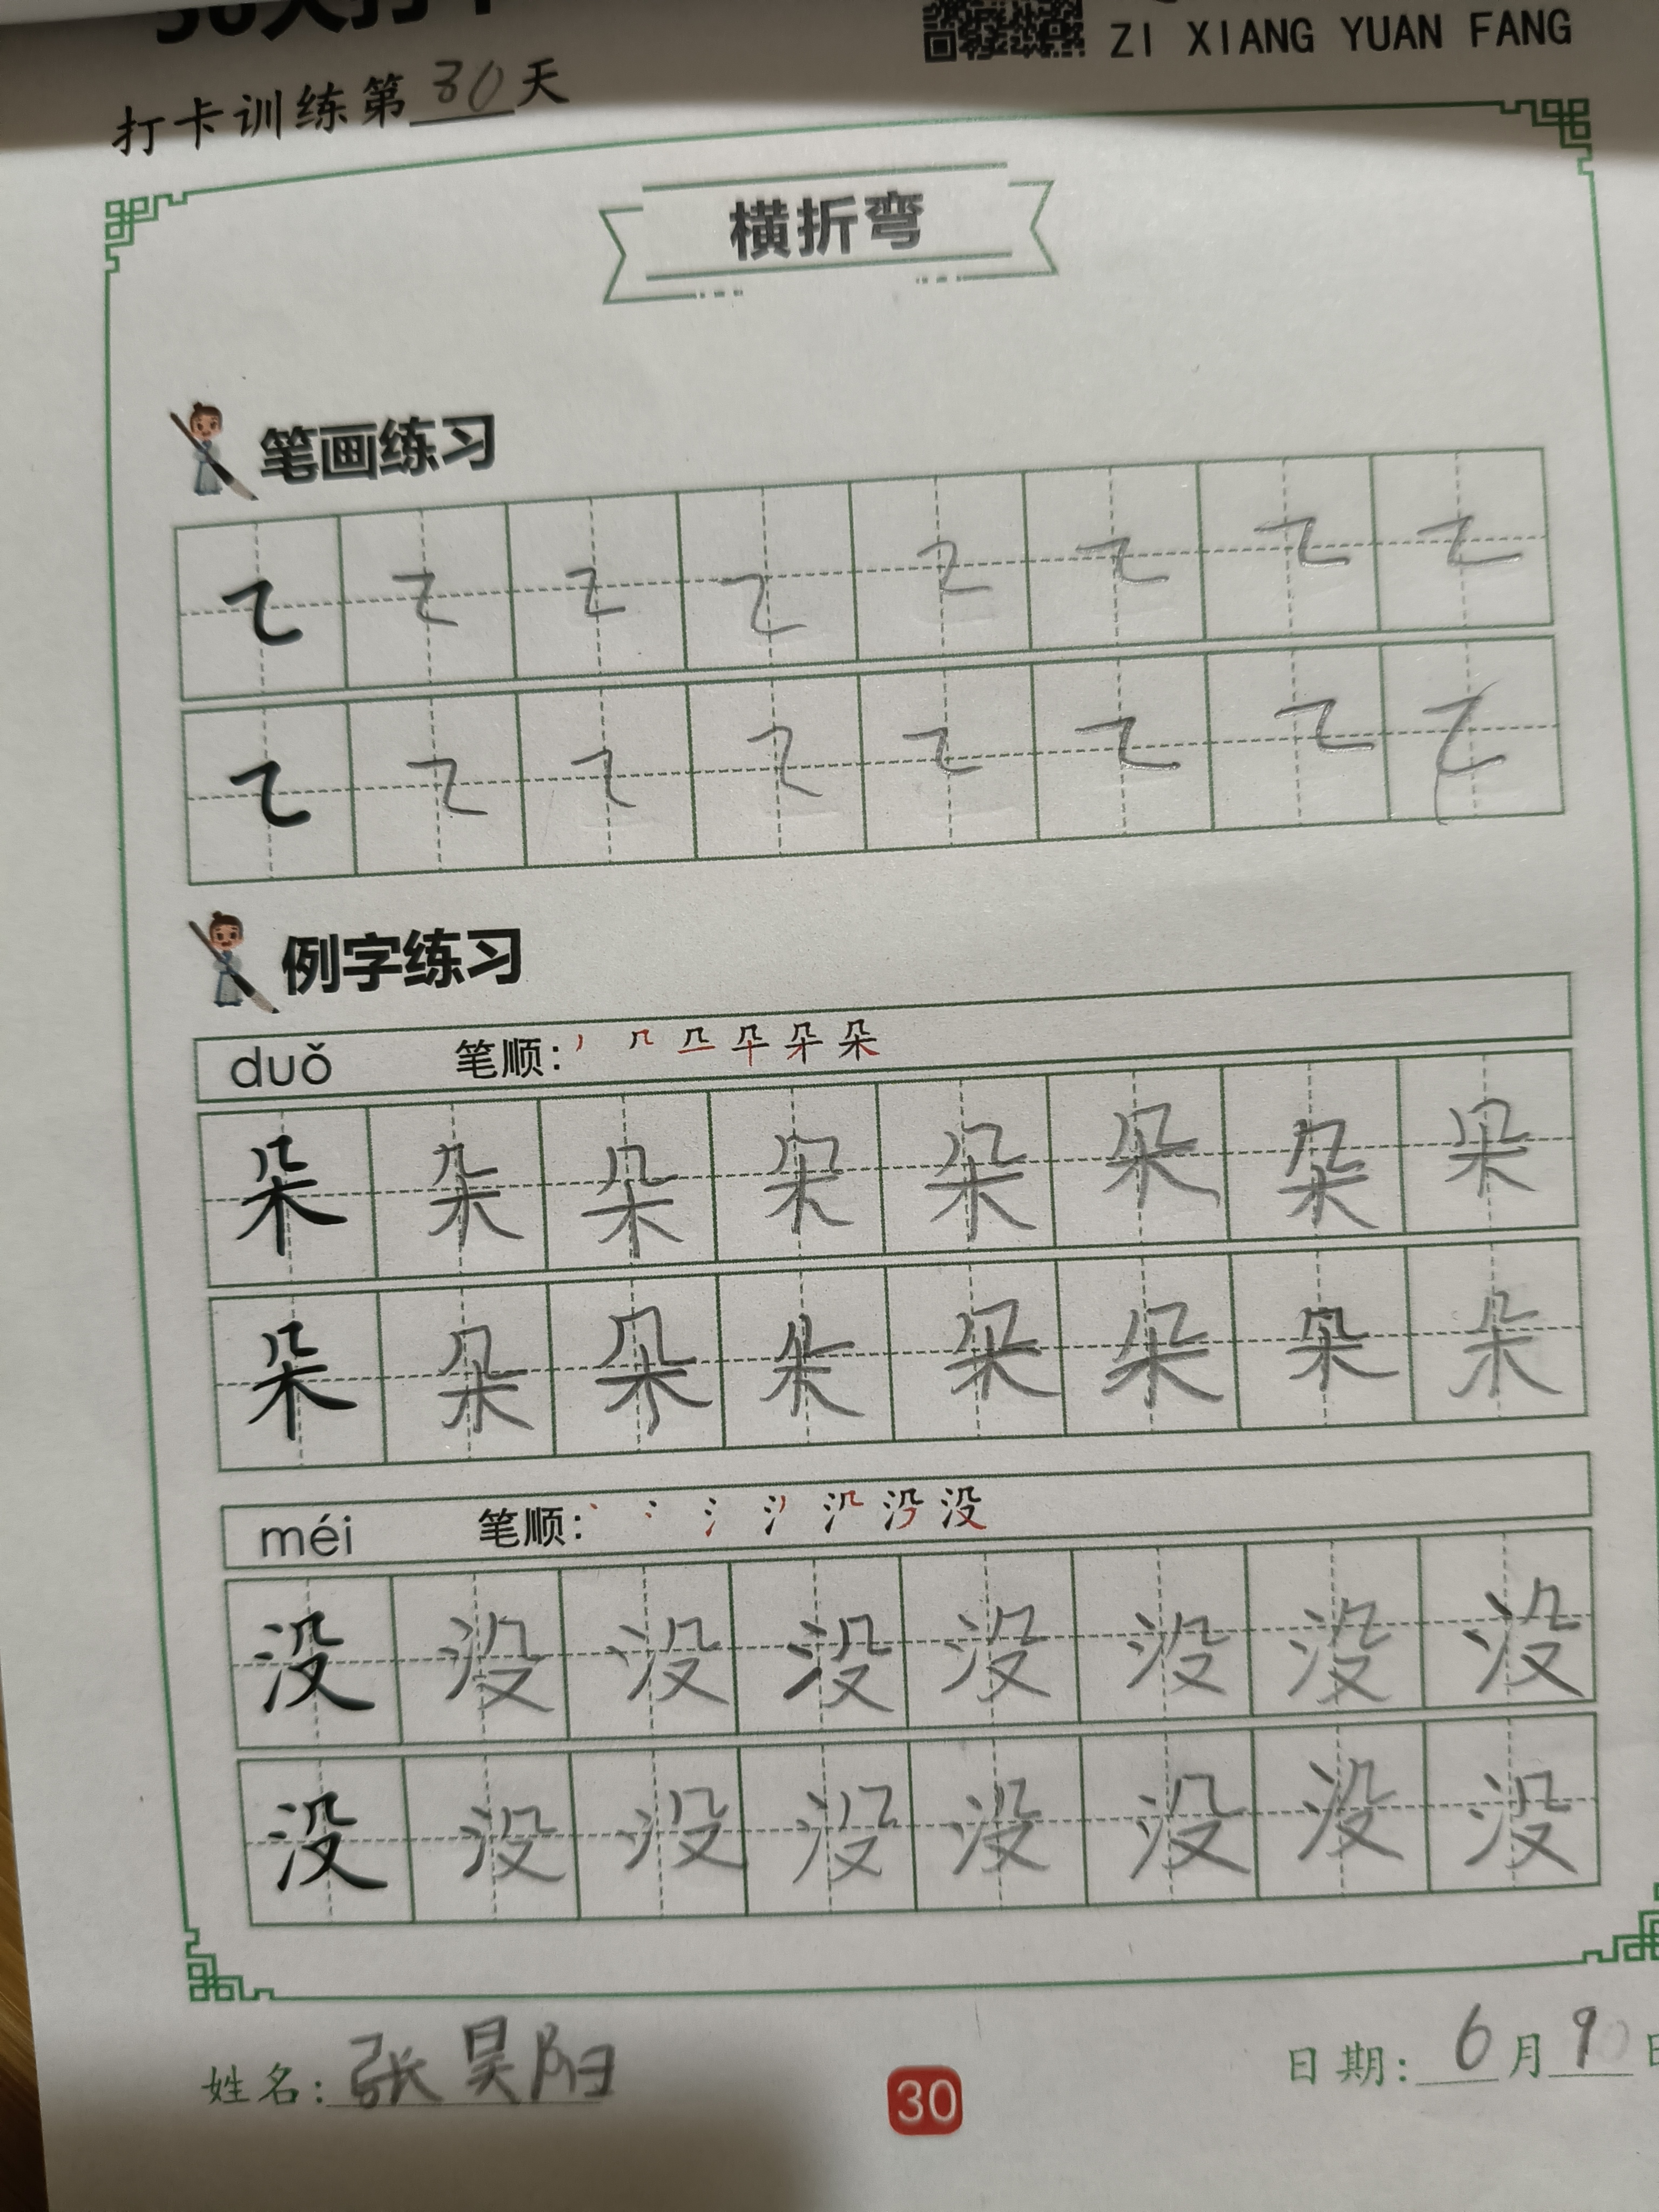 ZI XIANG YUAN FANG
打卡训练第30天
横折弯
笔画练习
例字练习
duǒ 笔顺:
朵 朵 朵 朵 朵 朵 朵 朵
朵 朵 朵 朵 朵 朵 朵 朵
méi 笔顺:
没 没 没 没 没 没 没 没
没 没 没 没 没 没 没 没
姓名: 张昊阳
30
日期: 6月9日